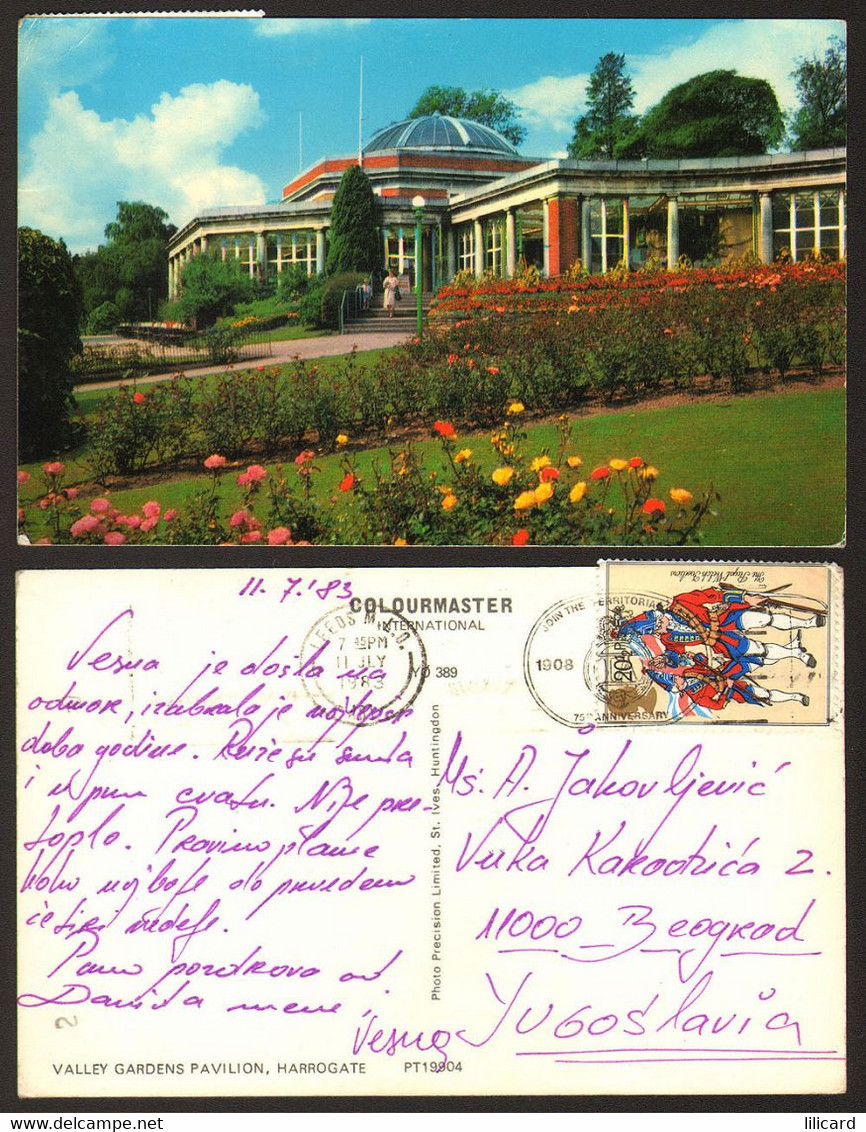 11. 7.'83
COLOURMASTER
INTERNATIONAL
YO 389
LEEDS
7 PM
11 JLY
1983
JOIN THE TERRITORIA
1908
75TH ANNIVERSARY
20½P
The Royal Welch Fusiliers
Vesna je došla na
odmor, izabrala je najlepše
doba godine. Ruže su svuda
i u punom cvatu. Nije pre-
toplo. Pravimo planove
kako najbolje da provedemo
četiri nedelje.
Puno pozdrava od
Davida i mene
Vesna
Photo Precision Limited, St. Ives, Huntingdon
Ms. A. Jakovljević
Vuka Karadžića 2.
11000 Beograd
Jugoslavia
2
VALLEY GARDENS PAVILION, HARROGATE PT19904
lilicard